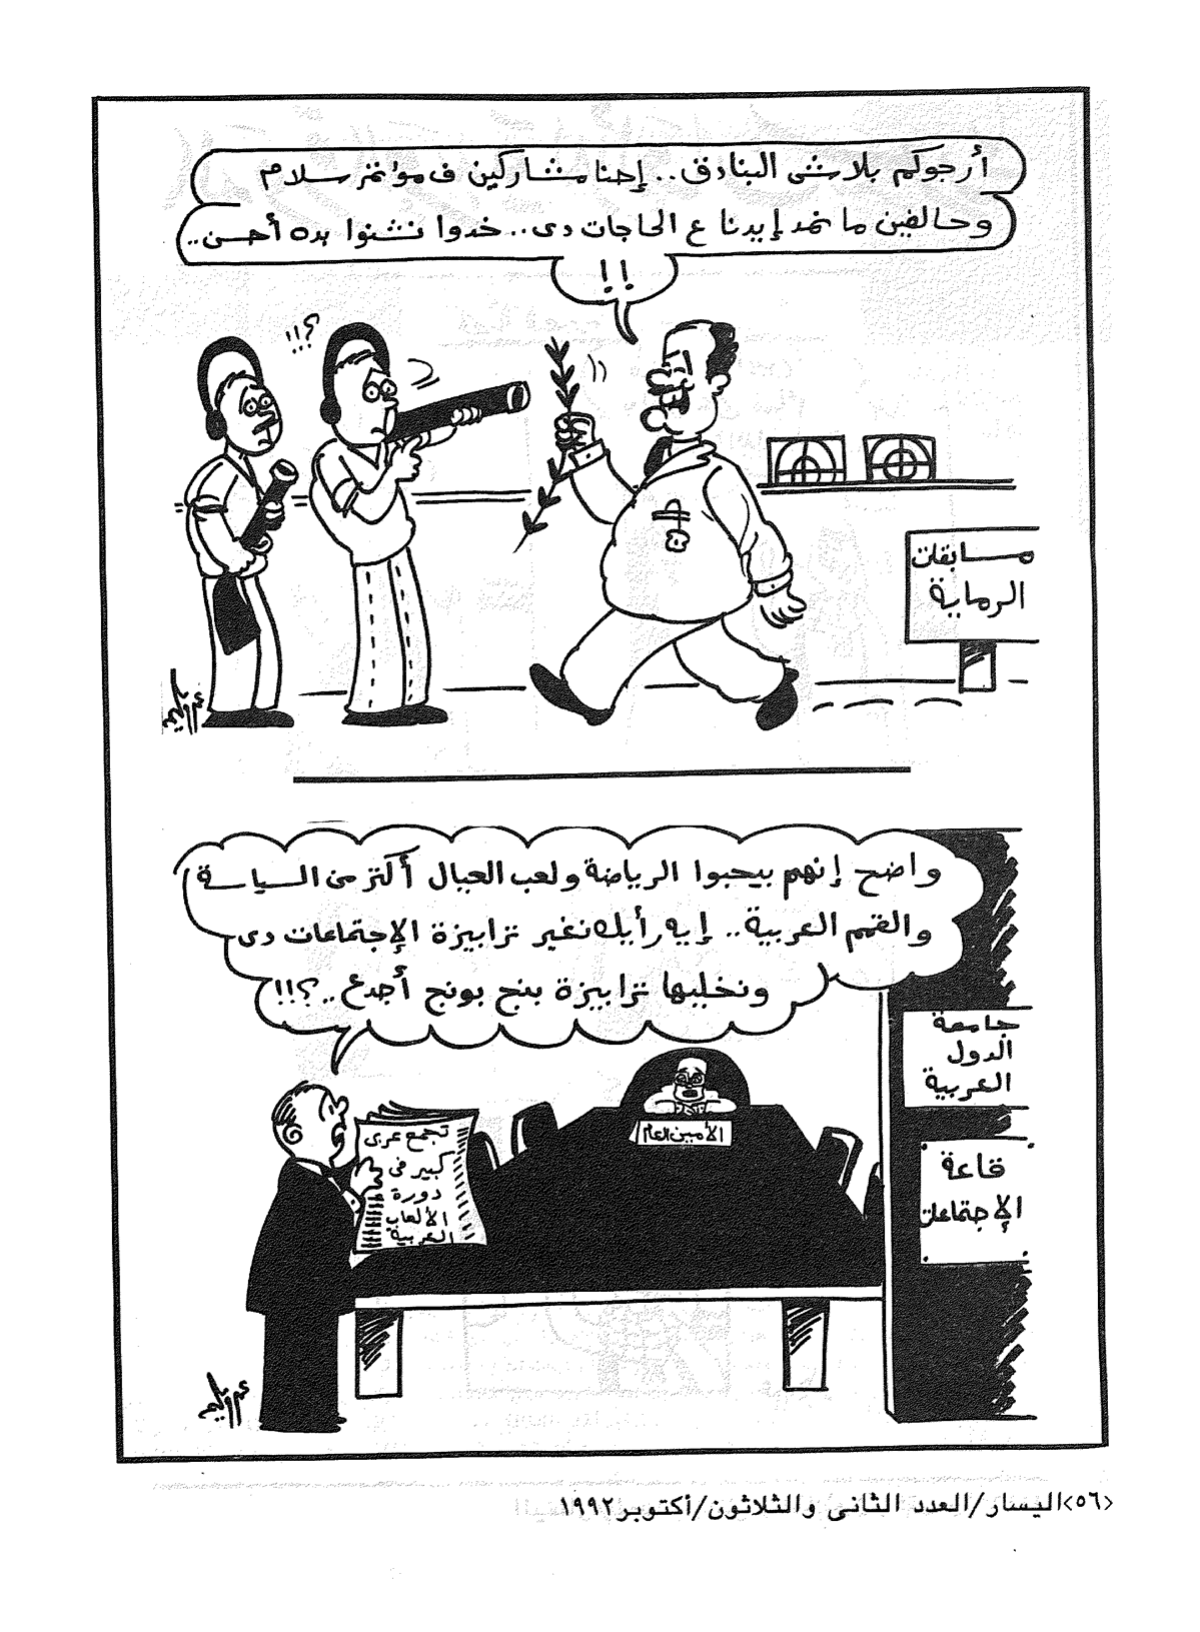 أرجوكم بلاش البنادق.. إحنا مشاركين ف مؤتمر سلام
وحالفين ما نمد إيدنا ع الحاجات دى.. خدوا نشنوا بده أحسن..
!!
؟!!
مسابقات
الرماية
واضح إنهم بيحبوا الرياضة ولعب العيال أكتر من السياسة
والقمم العربية.. إيه رأيك نغير ترابيزة الإجتماعات دى
ونخليها ترابيزة بنج بونج أجدع..؟!!
جامعة
الدول
العربية
الأمين العام
تجمع عربى
كبير فى
دورة
الألعاب
العربية
قاعة
الإجتماعات
عمرو سليم
<٥٦>اليسار/العدد الثانى والثلاثون/أكتوبر١٩٩٢